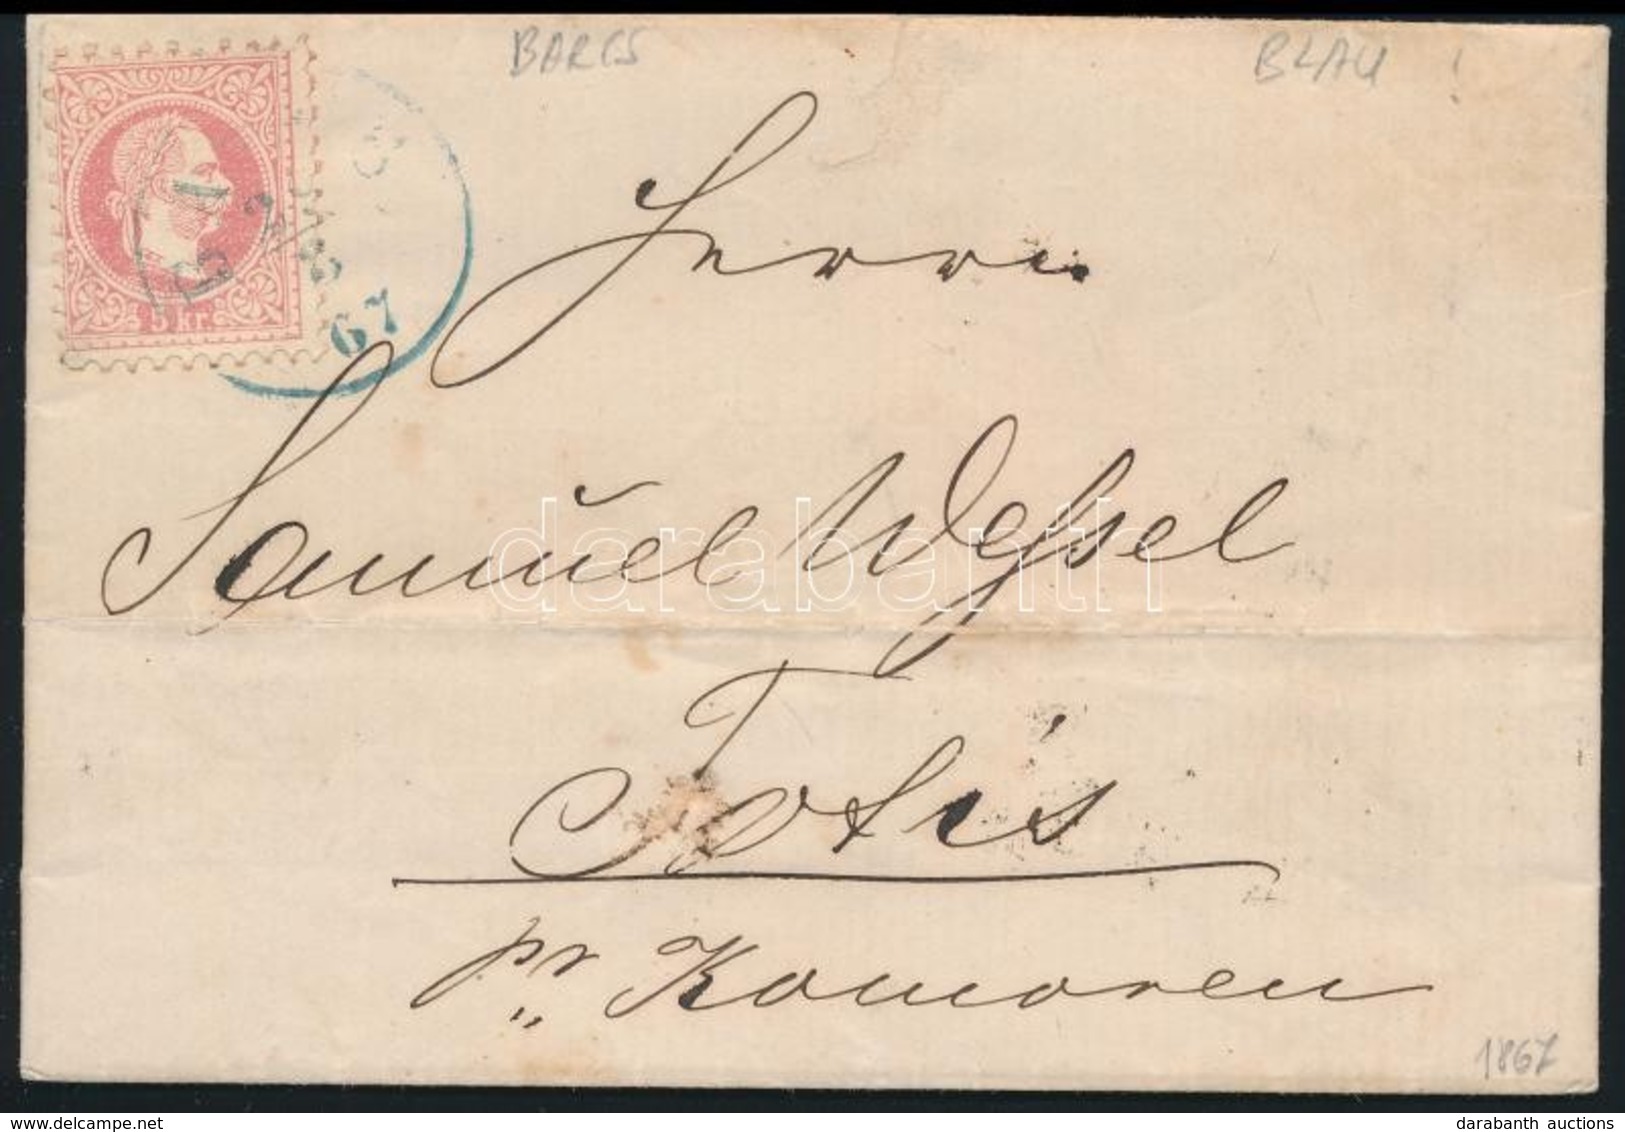 BARCS
BLAU !
5 kr.
67
Herrn
Samuel Wessel
Totis
pr Komoren
1867
darabanth
darabanth auctions
delcampe.net